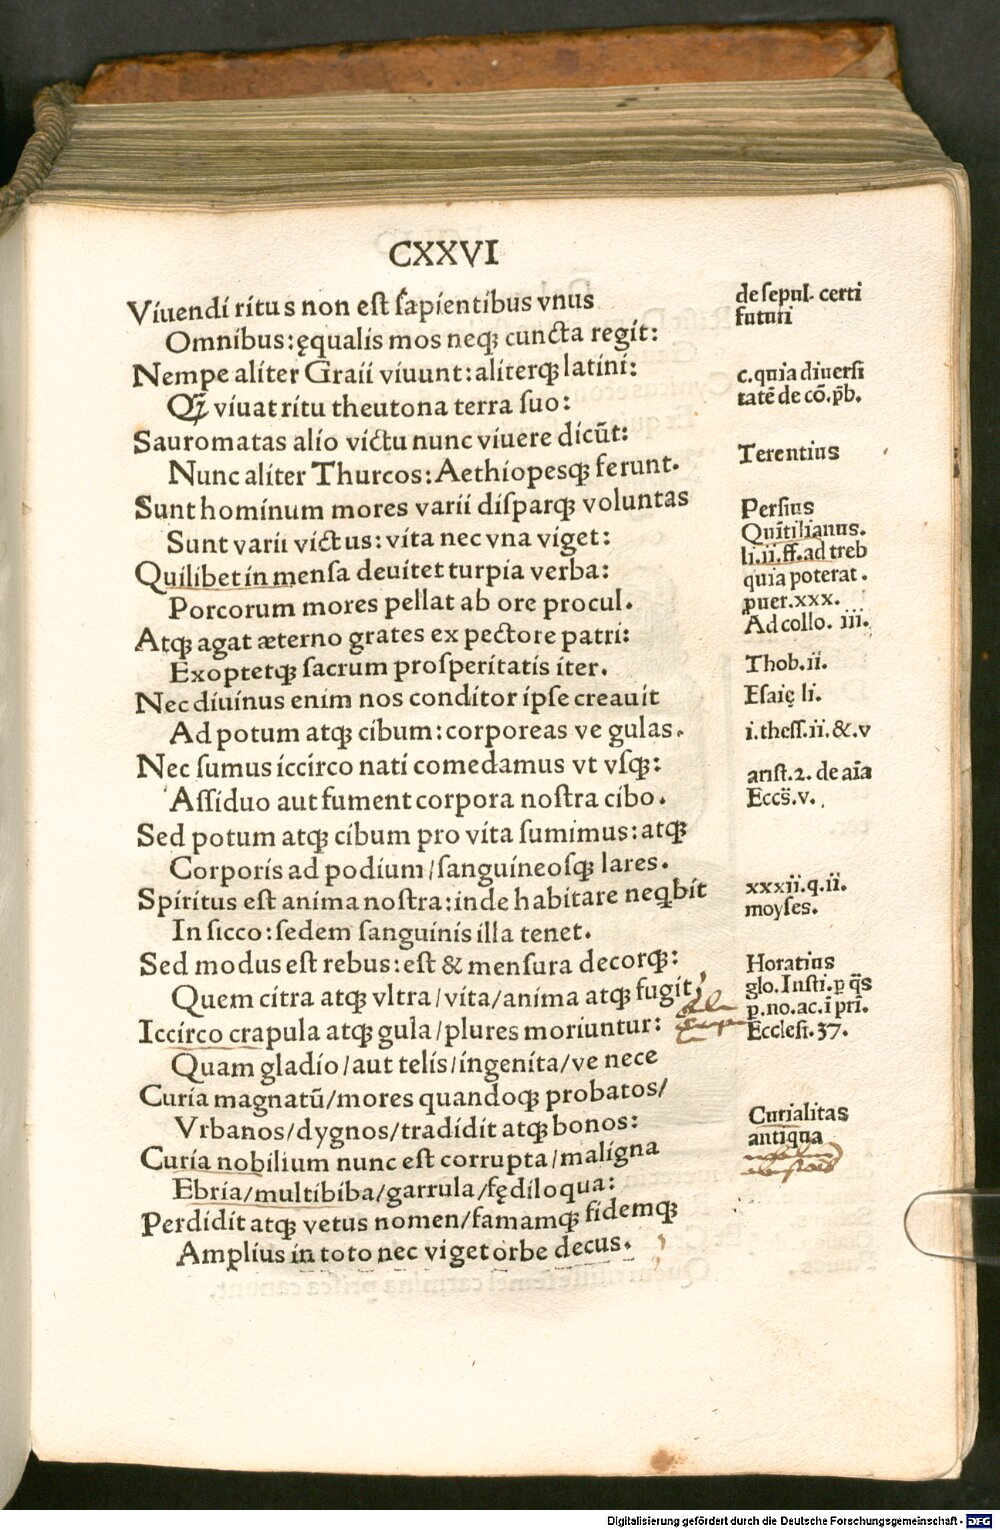 CXXVI
Viuendi ritus non eſt ſapientibus vnus
Omnibus: ęqualis mos neqꝫ cuncta regit:
Nempe aliter Graii viuunt: aliterqꝫ latini:
Qꝫ viuat ritu theutona terra ſuo:
Sauromatas alio victu nunc viuere dicūt:
Nunc aliter Thurcos: Aethiopesqꝫ ferunt.
Sunt hominum mores varii diſparqꝫ voluntas
Sunt varii victus: vita nec vna viget:
Quilibet in menſa deuitet turpia verba:
Porcorum mores pellat ab ore procul.
Atqꝫ agat æterno grates ex pectore patri:
Exoptetqꝫ ſacrum proſperitatis iter.
Nec diuinus enim nos conditor ipſe creauit
Ad potum atqꝫ cibum: corporeas ve gulas.
Nec ſumus iccirco nati comedamus vt vſqꝫ:
Aſſiduo aut fument corpora noſtra cibo.
Sed potum atqꝫ cibum pro vita ſumimus: atqꝫ
Corporis ad podium/ſanguineoſqꝫ lares.
Spiritus eſt anima noſtra: inde habitare neqͥbit
In ſicco: ſedem ſanguinis illa tenet.
Sed modus eſt rebus: eſt & menſura decorqꝫ:
Quem citra atqꝫ vltra/vita/anima atqꝫ fugit;
Iccirco crapula atqꝫ gula/plures moriuntur:
Quam gladio/aut telis/ingenita/ve nece
Curia magnatū/mores quandoqꝫ probatos/
Vrbanos/dygnos/tradidit atqꝫ bonos:
Curia nobilium nunc eſt corrupta/maligna
Ebria/multibiba/garrula/fędiloqua:
Perdidit atqꝫ vetus nomen/famamqꝫ fidemqꝫ
Amplius in toto nec viget orbe decus.
de ſepul. certi
futuri
c. quia diuerſi
tatē de cō. p̄b.
Terentius
Perſius
Quītilianus.
li. ii. ff. ad treb
quia poterat.
ꝓuer. xxx.
Ad collo. iii.
Thob. ii.
Eſaię li.
i. theſſ. ii. &. v
ariſt. 2. de aīa
Eccs̄. v.
xxxii. q. ii.
moyſes.
Horatius
glo. Inſti. ꝑ q̄s
ꝑ. no. ac. ī pri.
Eccleſi. 37.
Curialitas
antiqua
Digitalisierung gefördert durch die Deutsche Forschungsgemeinschaft - DFG